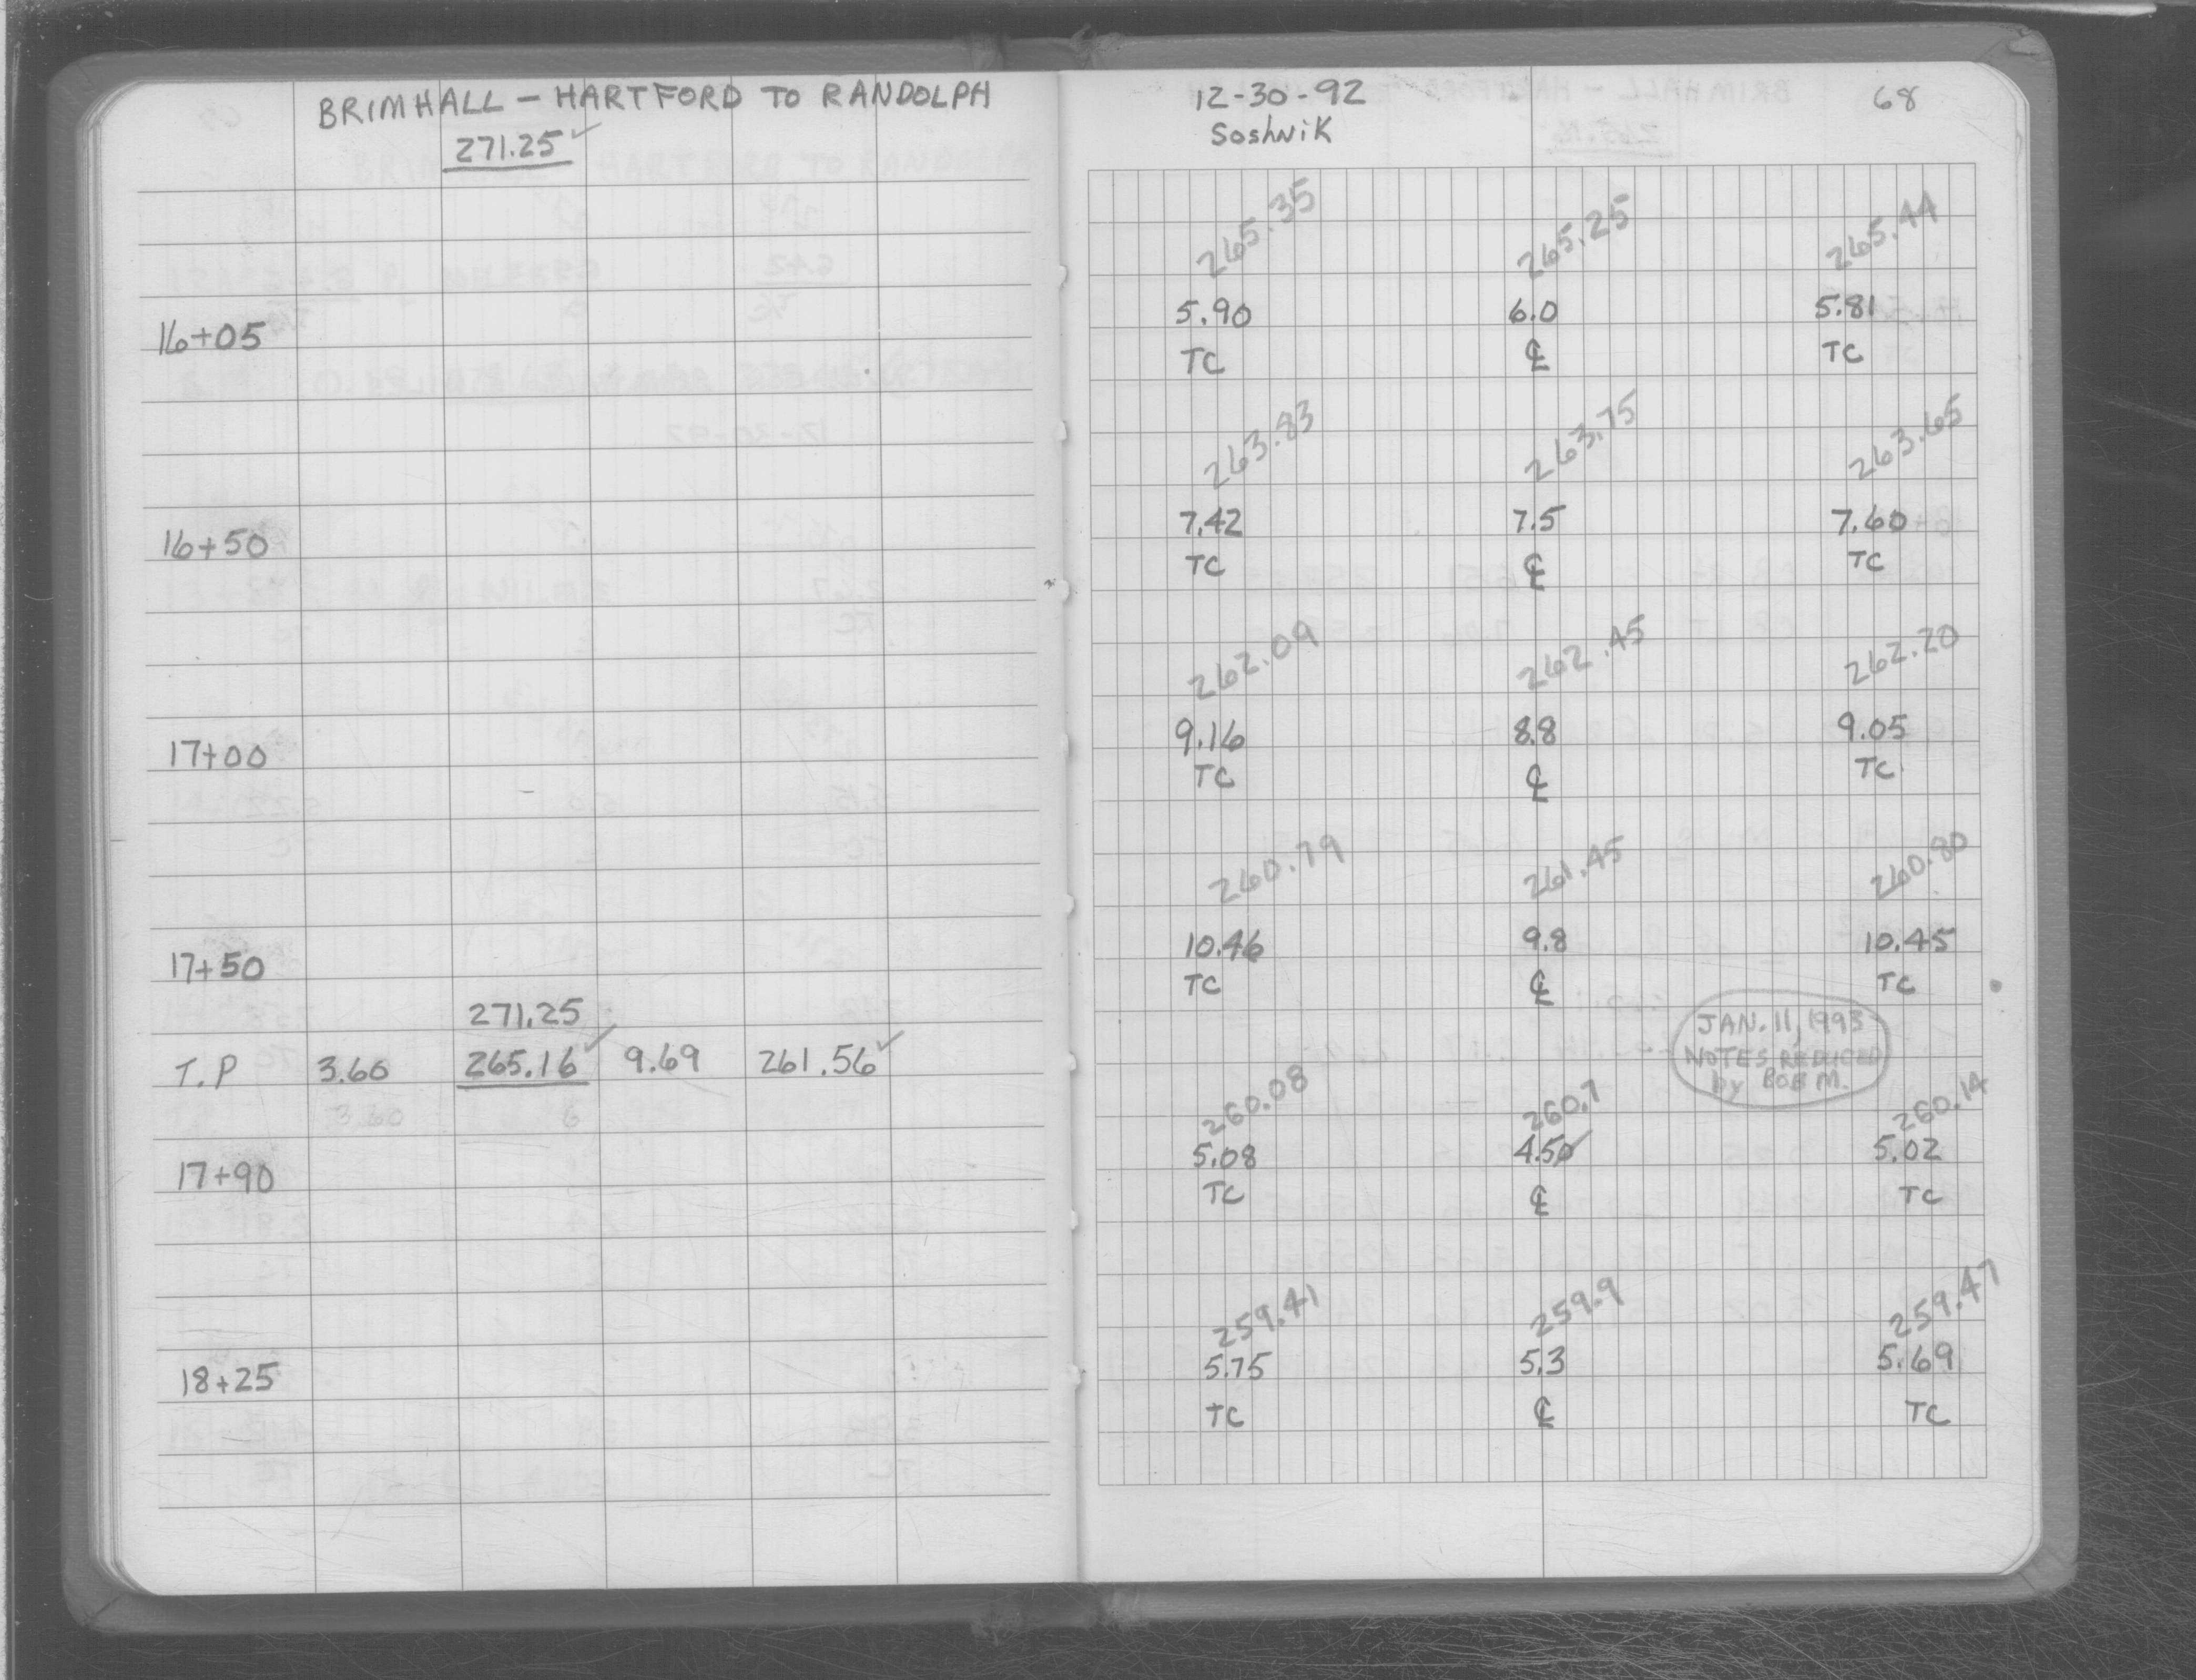 BRIMHALL – HARTFORD TO RANDOLPH
271.25 ✓
16+05
16+50
17+00
17+50
271.25
T.P 3.60 265.16 ✓ 9.69 261.56 ✓
3.60 6
17+90
18+25
12-30-92 68
SoshNiK
265.35 265.25 265.44
5.90 6.0 5.81
TC ℄ TC
263.83 263.75 263.65
7.42 7.5 7.60
TC ℄ TC
262.09 262.45 262.20
9.16 8.8 9.05
TC ℄ TC
260.79 261.45 260.80
10.46 9.8 10.45
TC ℄ TC
JAN. 11, 1993
NOTES REDUCED
by BOB M.
260.08 260.7 260.14
5.08 4.50 5.02
TC ℄ TC
259.41 259.9 259.47
5.75 5.3 5.69
TC ℄ TC